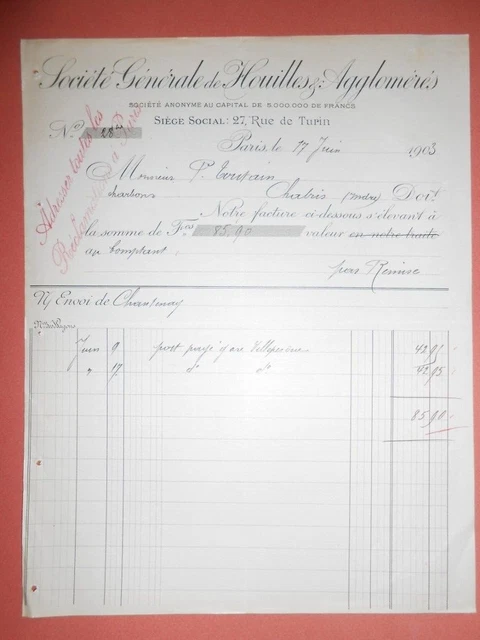 Société Générale de Houilles & Agglomérés
SOCIÉTÉ ANONYME AU CAPITAL DE 5.000.000 DE FRANCS
SIÈGE SOCIAL: 27, Rue de Turin
Nº
Adresser toutes les
Réclamations à Paris
Paris, le 17 Juin 1903
Monsieur P.
charbons Chabris (Indre) Doit
Notre facture ci-dessous s'élevant à
la somme de F.cs 85.90 valeur en notre traite
au comptant,
sans Remise
N/ Envoi de Chantenay
Nos des Wagons
Juin 9 port payé gare 42,95
" 17 dº dº 42,95
85,90